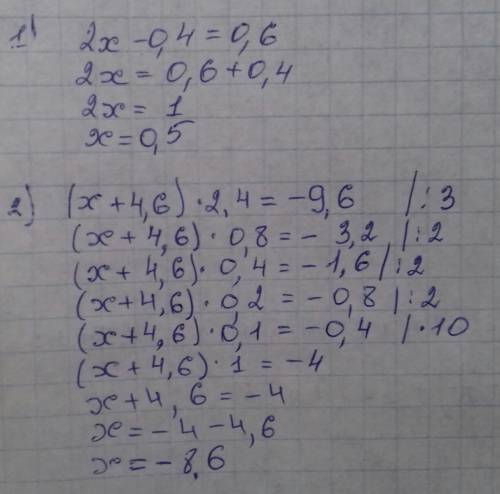 1) 2x - 0,4 = 0,6
2x = 0,6 + 0,4
2x = 1
x = 0,5
2) (x + 4,6) · 2,4 = -9,6 | : 3
(x + 4,6) · 0,8 = - 3,2 | : 2
(x + 4,6) · 0,4 = -1,6 | : 2
(x + 4,6) · 0,2 = -0,8 | : 2
(x + 4,6) · 0,1 = -0,4 | · 10
(x + 4,6) · 1 = -4
x + 4,6 = -4
x = -4 - 4,6
x = -8,6